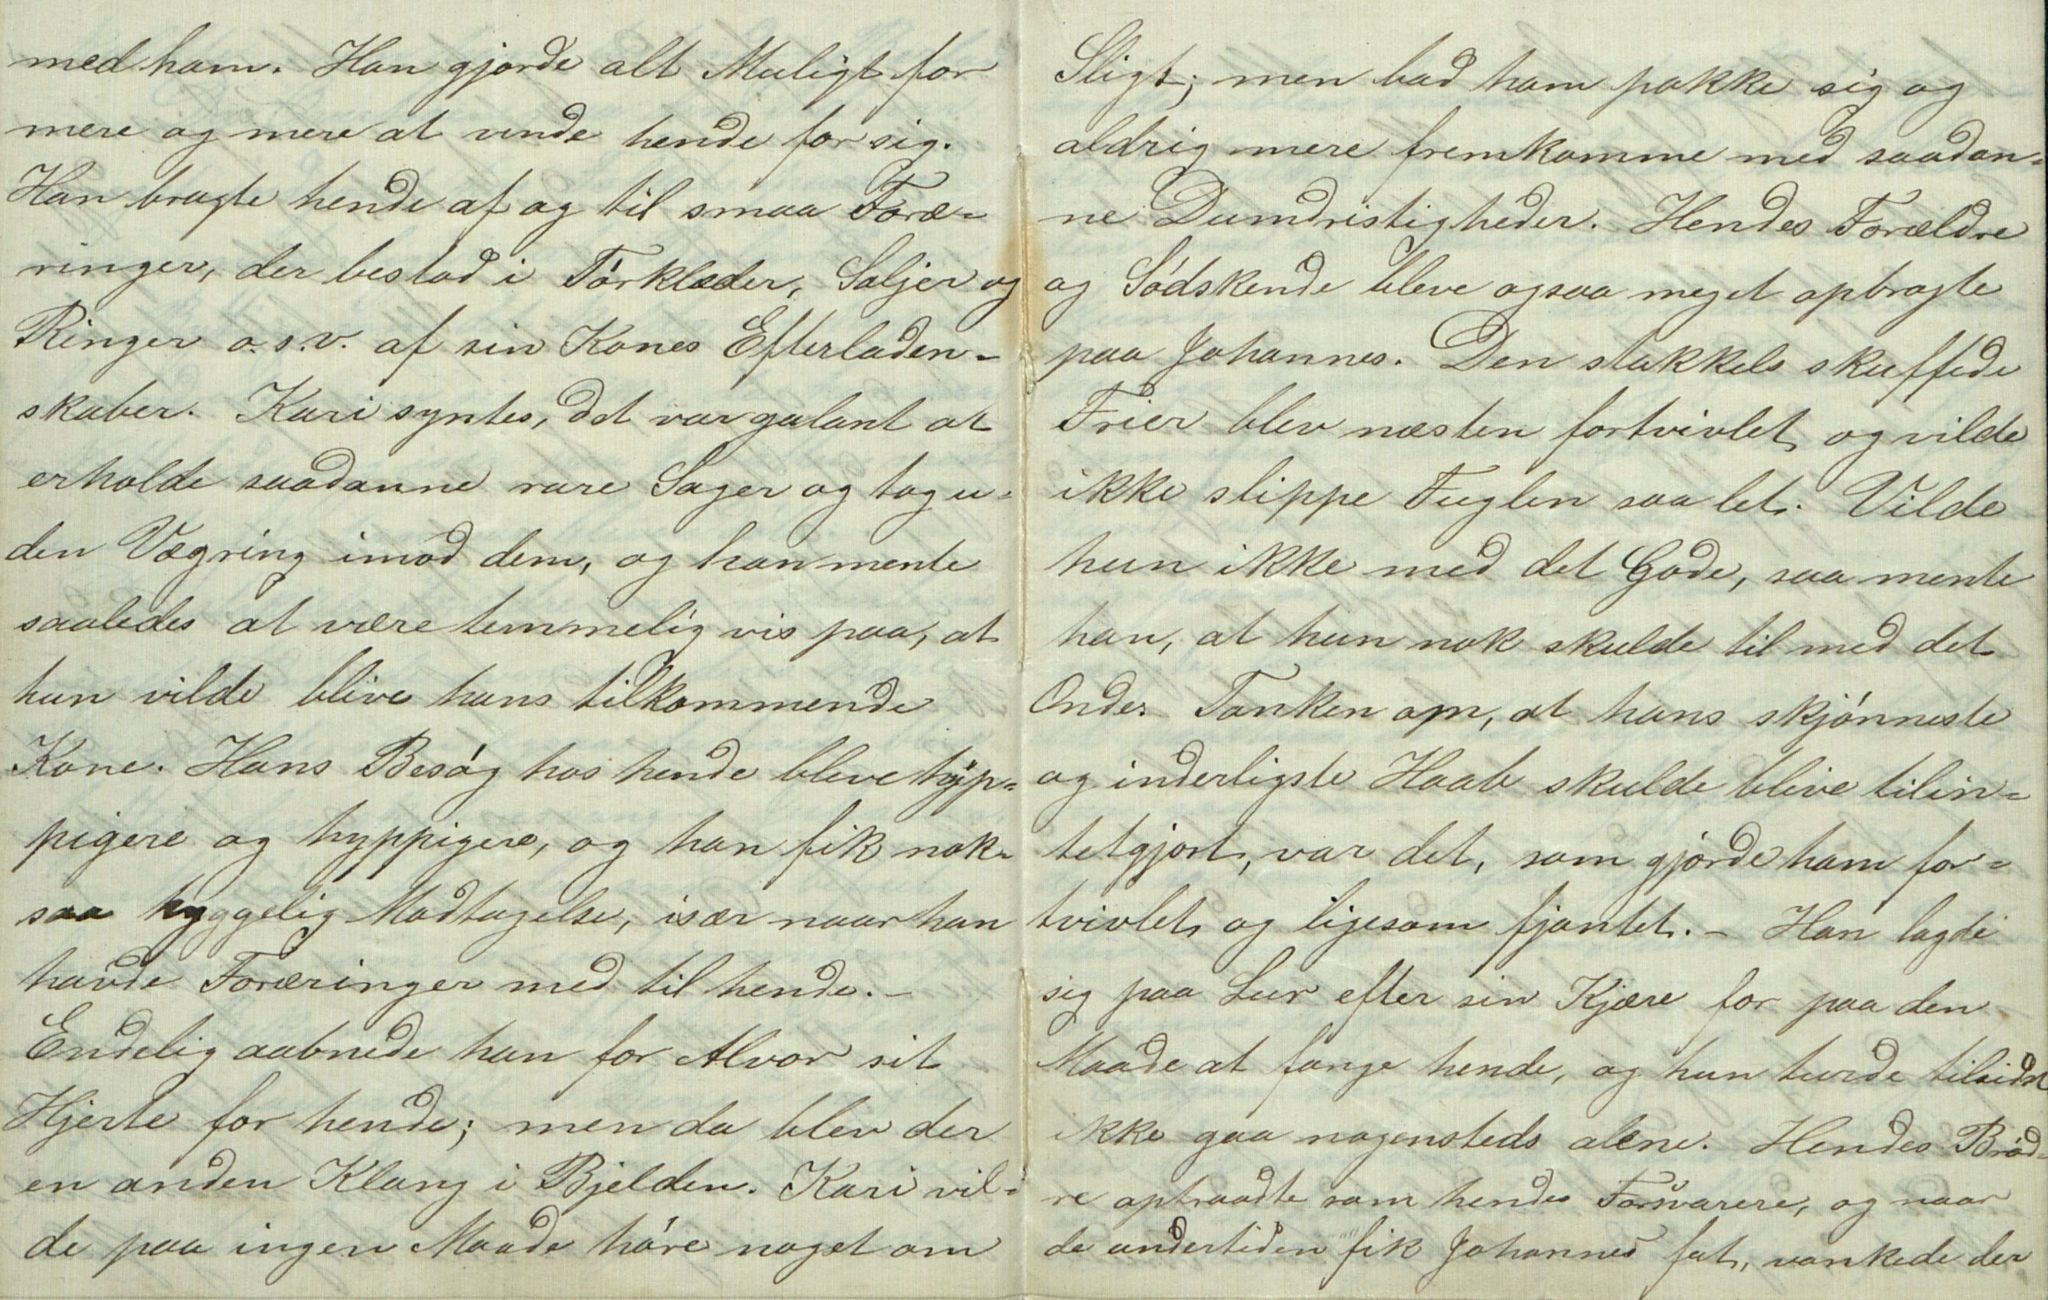 med ham. Han gjorde alt Muligt for
mere og mere at vinde hende for sig.
Han bragte hende af og til smaa Foræ-
ringer, der bestod i Tórklæder, Søljer og
Ringer o.s.v. af sin Kones Efterladen-
skaber. Kari syntes, det var galant at
erholde saadanne rare Sager og tog u-
den Vægring imod dem, og han mente
saaledes at være temmelig vis paa, at
hun vilde blive hans tilkommende
Kone. Hans Besóg hos hende bleve hyp-
pigere og hyppigere, og han fik nok-
saa hyggelig Modtagelse, især naar han
havde Foræringer med til hende. –
Endelig aabnede han for Alvor sit
Hjerte for hende; men da blev der
en anden Klang i Bjelden. Kari vil-
de paa ingen Maade hóre noget om
Sligt; men bad ham pakke sig og
aldrig mere fremkomme med saadan-
ne Dumdristigheder. Hendes Forældre
og Sódskende bleve ogsaa meget opbragte
paa Johannes. Den stakkels skuffede
Frier blev næsten fortvivlet og vilde
ikke slippe Fuglen saa let. Vilde
hun ikke med det Gode, saa mente
han, at hun nok skulde til med det
Onde. Tanken om, at hans skjónneste
og inderligste Haab skulde blive tilin-
tetgjort, var det, som gjorde ham for-
tvivlet og ligesom fjantet. – Han lagde
sig paa Lur efter sin Kjære for paa den
Maade at fange hende, og hun turde tilsidst
ikke gaa nogensteds alene. Hendes Bród-
re optraadte som hendes Forsvarere, og naar
de undertiden fik Johannes fat, vankede der